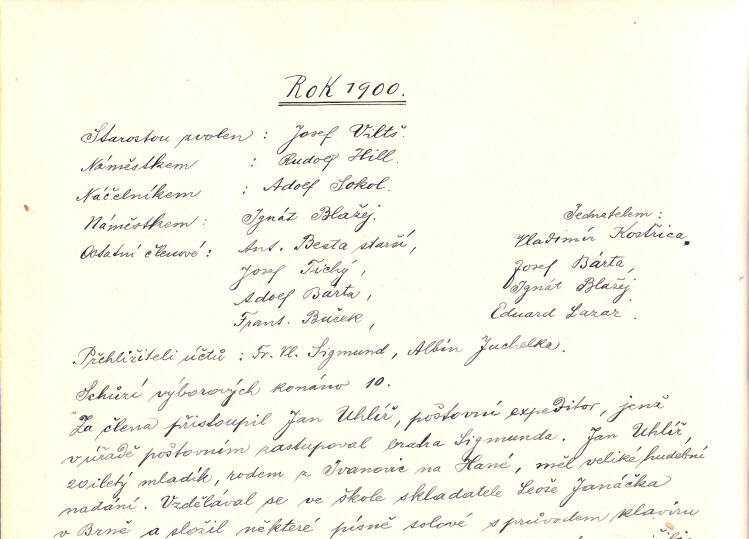 Rok 1900.
Starostou zvolen : Josef Viltš.
Náměstkem : Rudolf Hill.
Náčelníkem : Adolf Sokol.
Náměstkem : Ignát Blažej.
Jednatelem :
Ostatní členové : Ant. Besta starší, Vladimír Kostřica.
Josef Tichý, Josef Bárta,
Adolf Bárta, Ignát Blažej
Frant. Buček, Eduard Lazar.
Přehlížiteli účtů : Fr. Vl. Sigmund, Albín Juchelka.
Schůzí výborových konáno 10.
Za člena přistoupil Jan Uhlíř, poštovní expeditor, jenž
v úřadě poštovním zastupoval bratra Sigmunda. Jan Uhlíř,
20iletý mladík, rodem z Ivanovic na Hané, měl veliké hudební
nadání. Vzdělával se ve škole skladatele Leoše Janáčka
v Brně a složil některé písně solové s průvodem klavíru